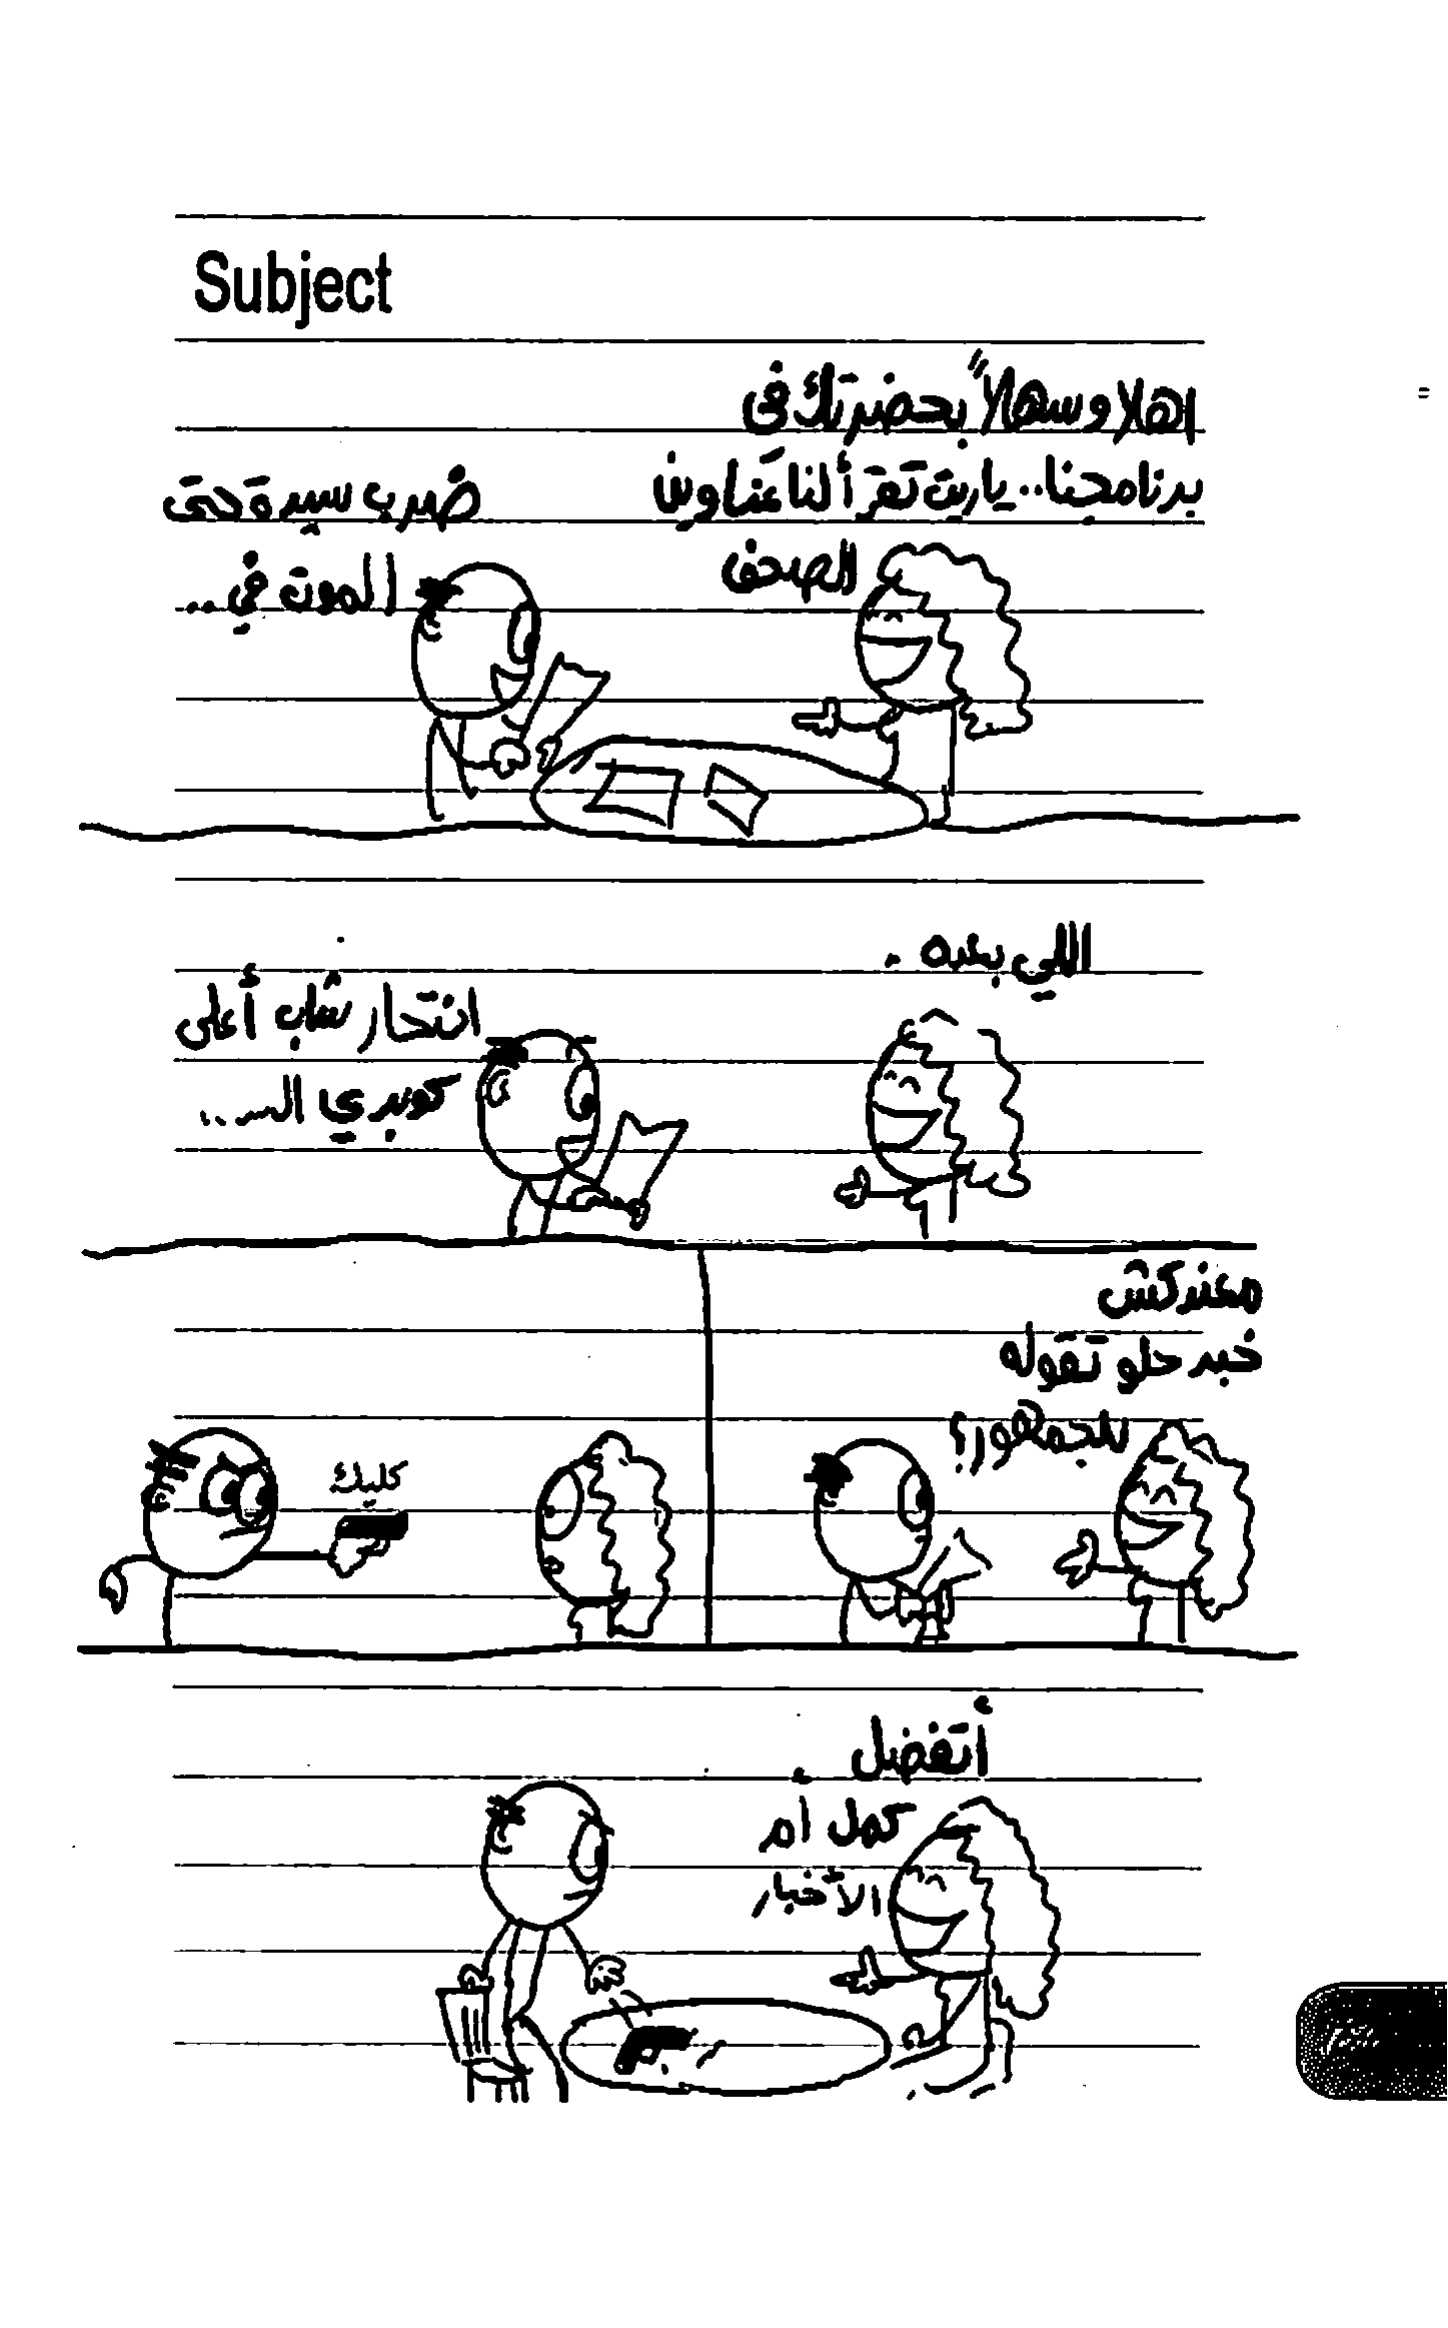 Subject
اهلا وسهلاً بحضرتك في
برنامجنا.. ياريت تقرألنا عناوين
الصحف
ضرب سيدة حتى
الموت في..
اللي بعده.
انتحار شاب أعلى
كوبري الســ..
معندكش
خبر حلو تقوله
للجمهور؟
كليك
أتفضل
كمل أم
الأخبار